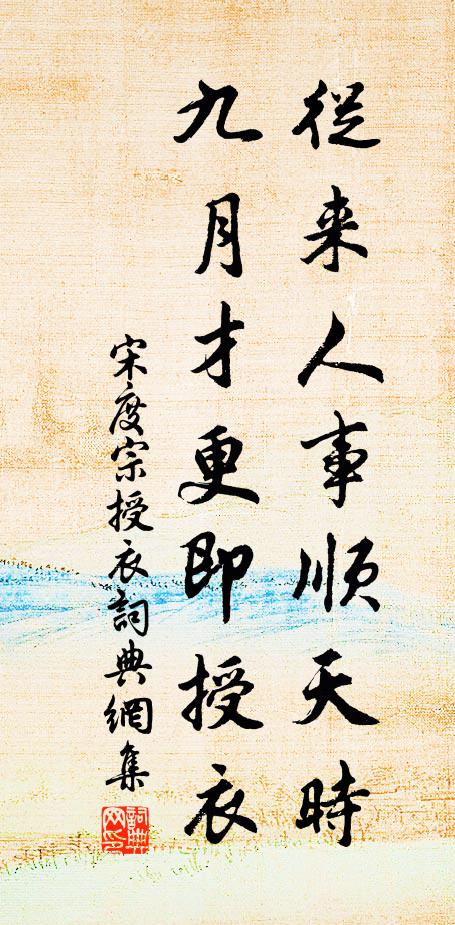 從来人事順天時
九月才更即授衣
宋度宗授衣詞典網集
詞典網印